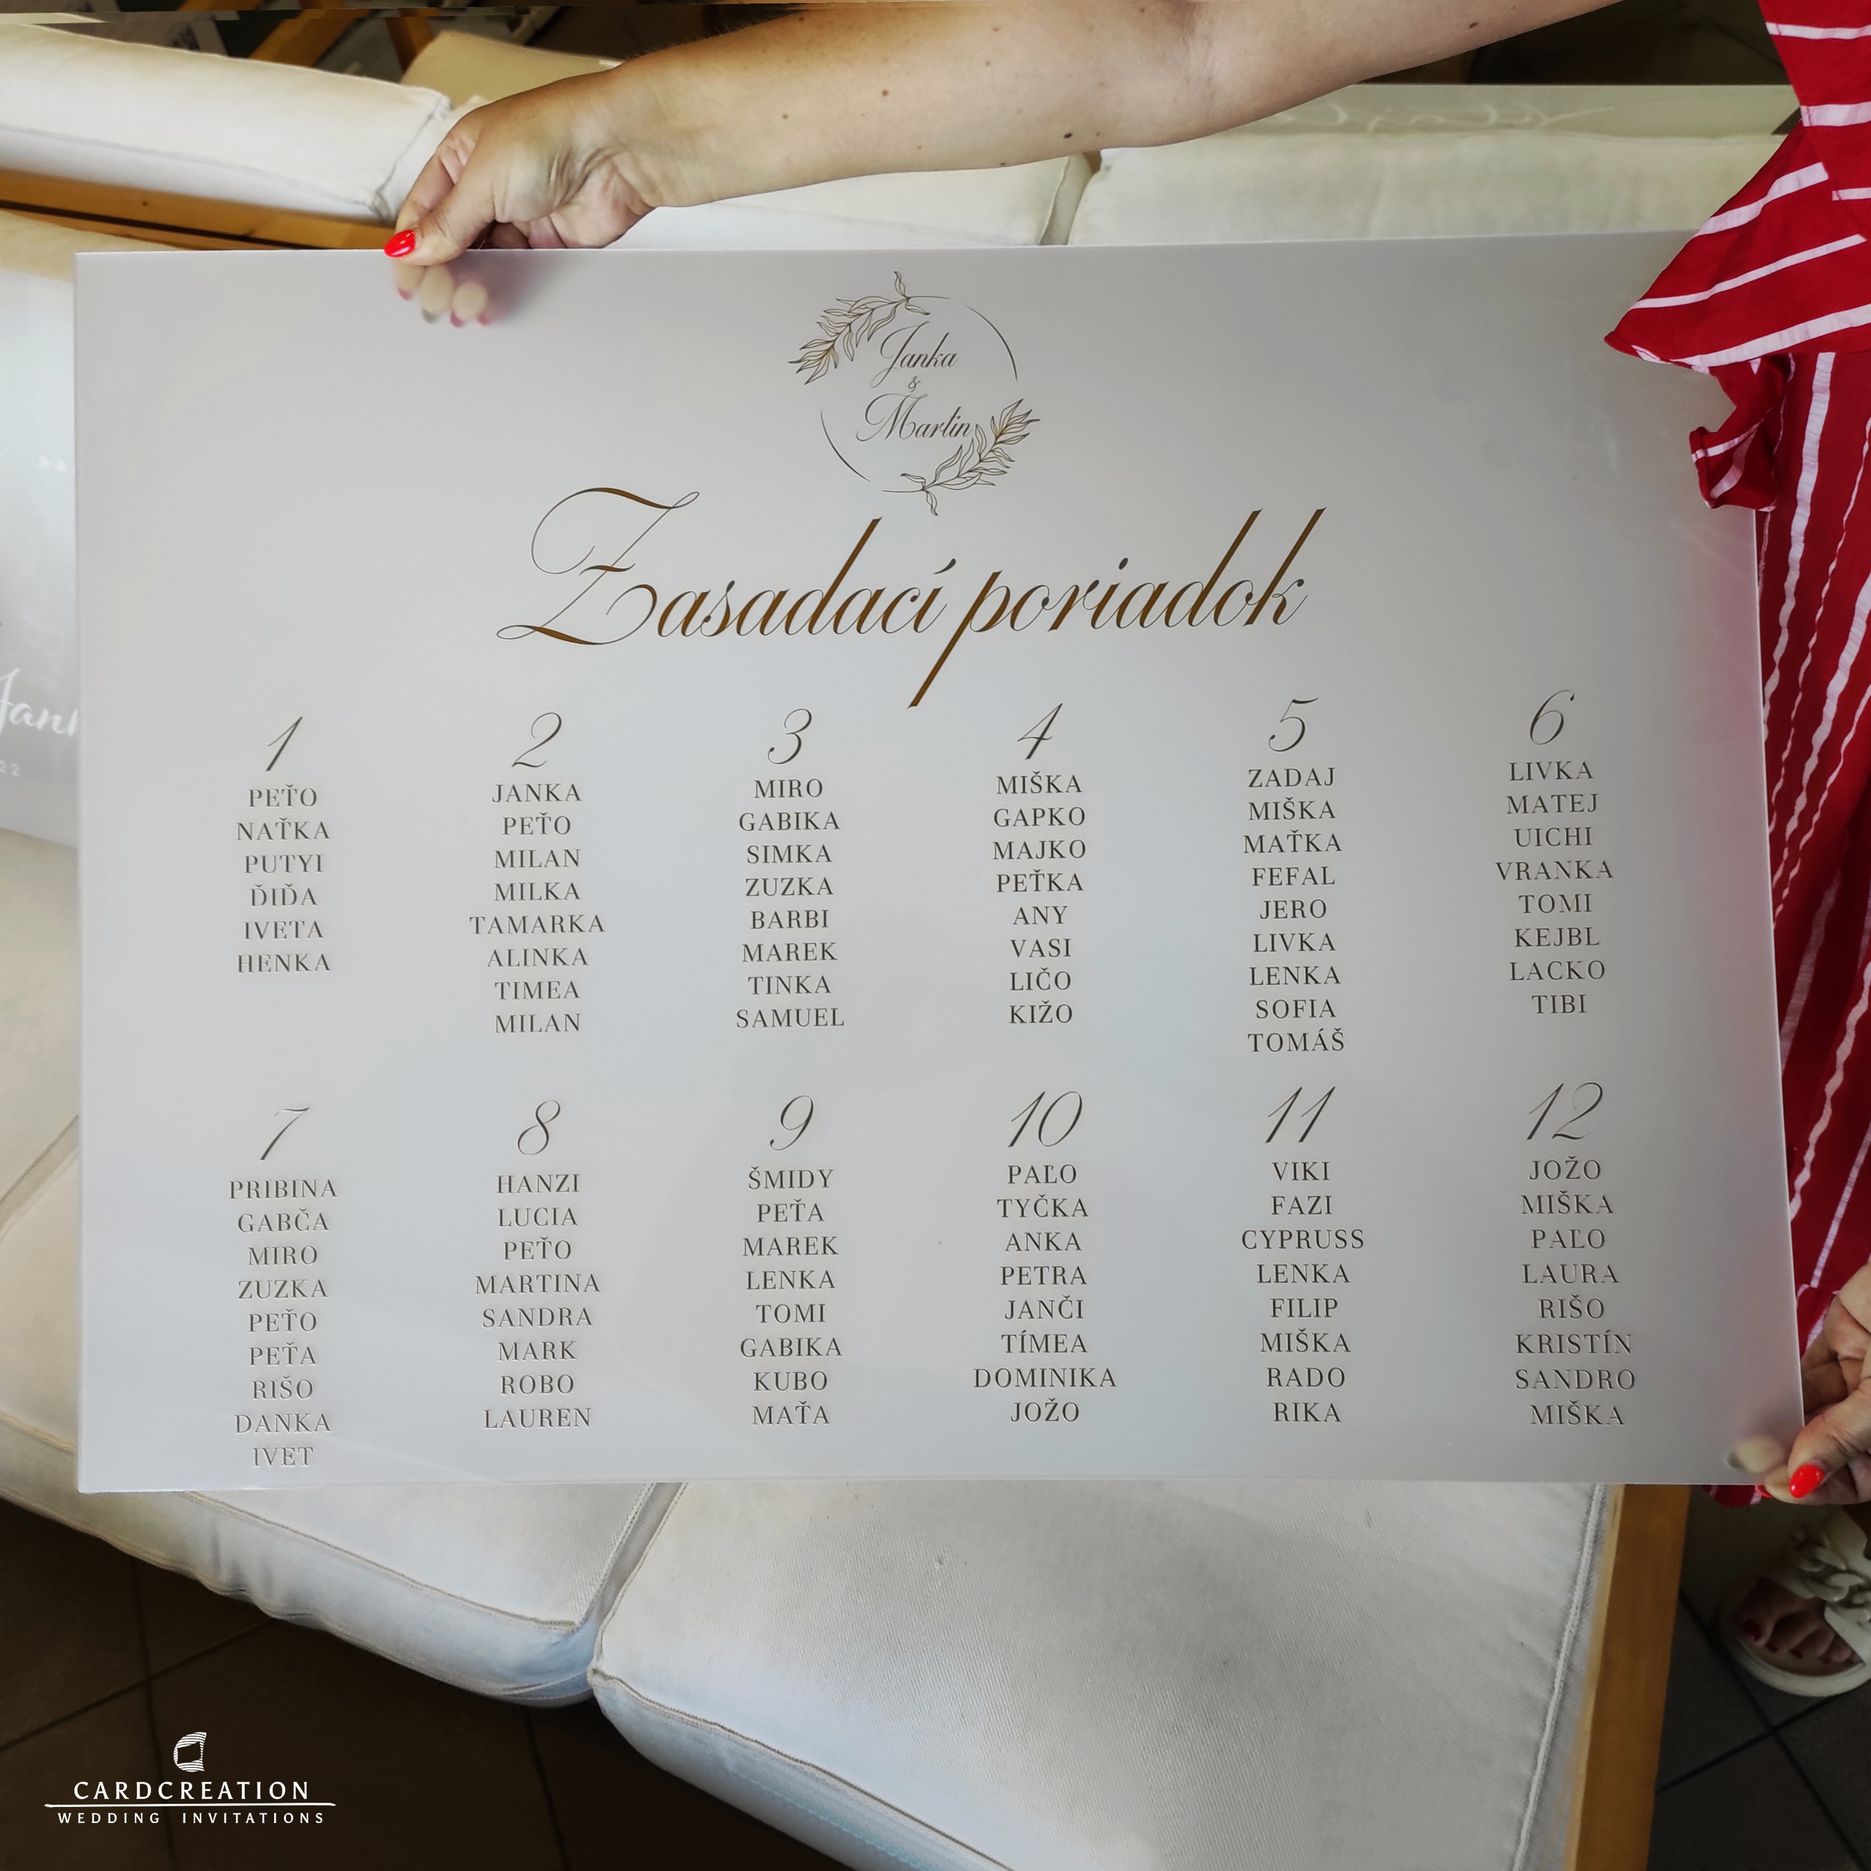 Janka
&
Martin
Zasadací poriadok
1
PEŤO
NAŤKA
PUTYI
ĎIĎA
IVETA
HENKA
2
JANKA
PEŤO
MILAN
MILKA
TAMARKA
ALINKA
TIMEA
MILAN
3
MIRO
GABIKA
SIMKA
ZUZKA
BARBI
MAREK
TINKA
SAMUEL
4
MIŠKA
GAPKO
MAJKO
PEŤKA
ANY
VASI
LIČO
KIŽO
5
ZADAJ
MIŠKA
MAŤKA
FEFAL
JERO
LIVKA
LENKA
SOFIA
TOMÁŠ
6
LIVKA
MATEJ
UICHI
VRANKA
TOMI
KEJBL
LACKO
TIBI
7
PRIBINA
GABČA
MIRO
ZUZKA
PEŤO
PEŤA
RIŠO
DANKA
IVET
8
HANZI
LUCIA
PEŤO
MARTINA
SANDRA
MARK
ROBO
LAUREN
9
ŠMIDY
PEŤA
MAREK
LENKA
TOMI
GABIKA
KUBO
MAŤA
10
PAĽO
TYČKA
ANKA
PETRA
JANČI
TÍMEA
DOMINIKA
JOŽO
11
VIKI
FAZI
CYPRUSS
LENKA
FILIP
MIŠKA
RADO
RIKA
12
JOŽO
MIŠKA
PAĽO
LAURA
RIŠO
KRISTÍN
SANDRO
MIŠKA
CARDCREATION
WEDDING INVITATIONS